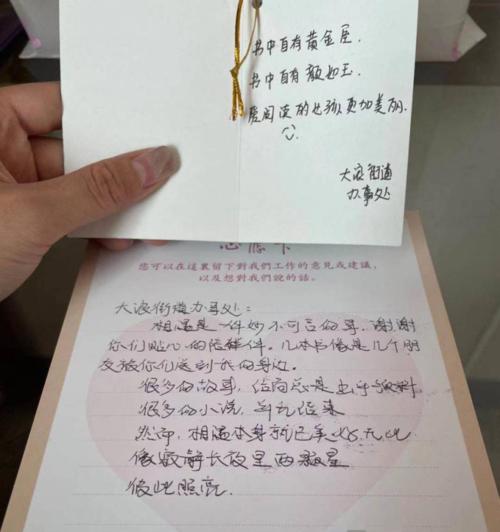 书中自有黄金屋.
书中自有颜如玉.
爱阅读的女孩更加美丽.
大浪街道
办事处
心愿卡
您可以在這裏留下對我們工作的意見或建議,
以及想對我們說的話。
大浪街道办事处:
相遇是一件妙不可言的事,谢谢
你们贴心的
件。几本书像是几个朋
友被你们送到我的身边.
很多的故事,结局总是出乎预料
很多的小说,
然而,相遇本身就已美好无比
像寂静长夜里两颗星
彼此照亮.